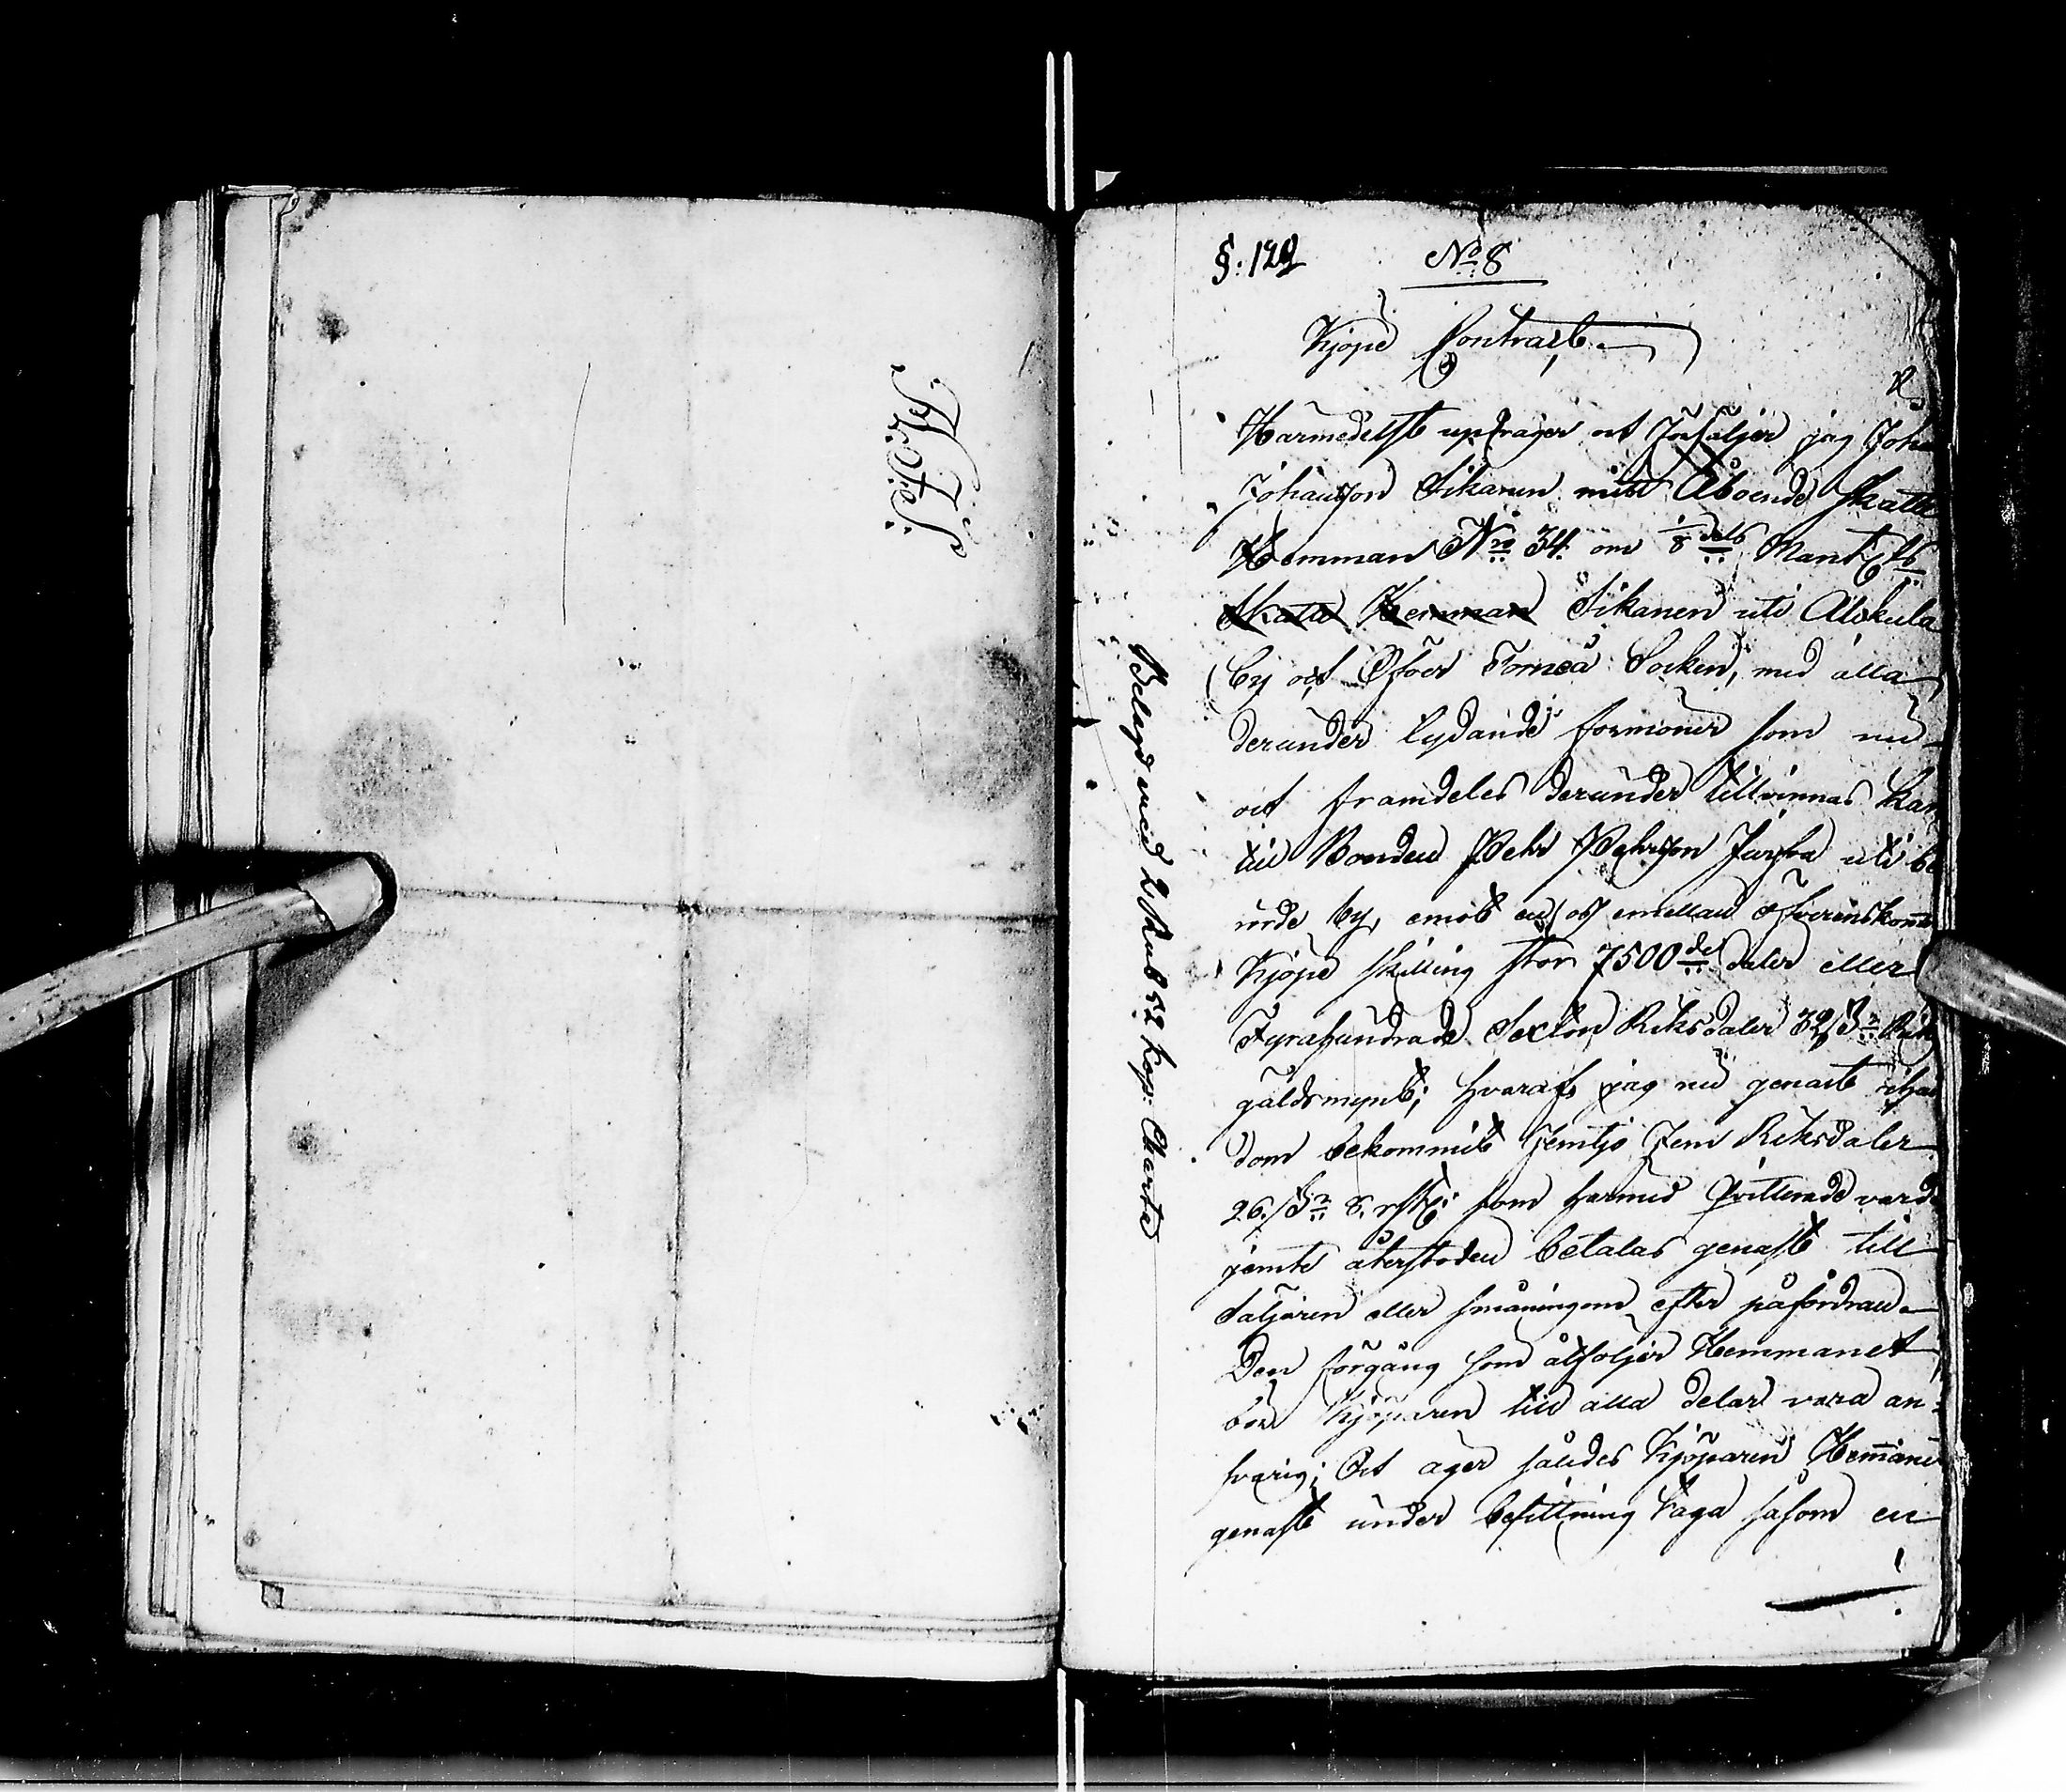 §. 122 No 8
Kjöpe Contract.
Härmedelst updrager och Försäljer jag Joha
Johansson Sikanen mitt Åboende Skatte
Hemman No 34. om 1/8 dels Mant.
Skatte Hemman Sikanen uti Alskula
by och Öfver Torneå Socken, med alla
derunder lydande förmoner som nu
och framdeles derunder tillvinnas kan
till Bonden Pehr Pehrson Jurfva uti be
rörde by, emot en oss emellan öfverenskomme
Kjöpe skilling stor 7500 de daler eller
Fyrahundrade Sexton Riksdaler 32 s Riks
gäldsmynt; hvaraf jag nu genast
dom bekommit Femtjo Fem Riksdaler
26. s 8. rst: som härmed qvitterade varde
jemte återstoden betalas genast till
Säljaren eller småningom efter påfordran.
Den förgång som åtföljer Hemmanet
bör Kjöparen till alla delar vara an-
svarig; Och äger således Kjöparen Hemman
genast under besittning taga såsom en
Belagd med 2 Rub 52 kop: Charta